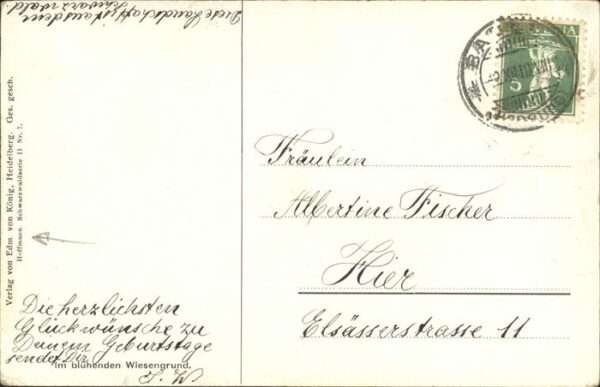 Diese Landschaft ist aus dem
Schwarzwald
Verlag von Edm von König, Heidelberg. Ges. gesch.
Hoffmann. Schwarzwaldserie II Nr. 7.
Fräulein
Albertine Fischer
Hier
Elsässerstrasse 11
Die herzlichsten
Glückwünsche zu
Deinem Geburtstage
sendet Dir
Im blühenden Wiesengrund.